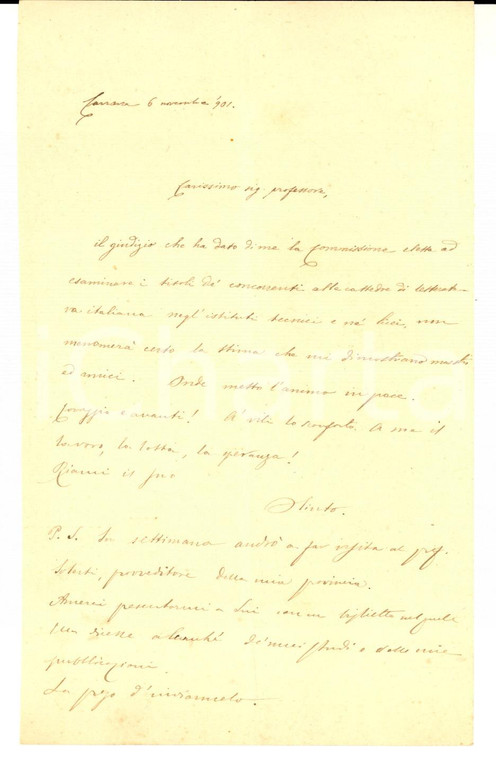 Carrara 6 novembre '901.
Carissimo sig. professore,
il giudizio che ha dato di me la Commissione eletta ad
esaminare i titoli de' concorrenti alla cattedra di lettera-
tura italiana negl'istituti tecnici e ne' licei, non
menomerà certo la stima che mi dimostrano maestri
ed amici. Onde metto l'animo in pace.
Coraggio e avanti! A' vili lo sconforto. A me il
lavoro, la lotta, la speranza!
Riami il suo
Olinto.
P. S. In settimana andrò a far visita al prof.
proveditore della mia provincia.
Amerei presentarmi a Lui con un biglietto nel quale
Ella dicesse alcunché de' miei studi e delle mie
pubblicazioni.
La prego d'inviarmelo.